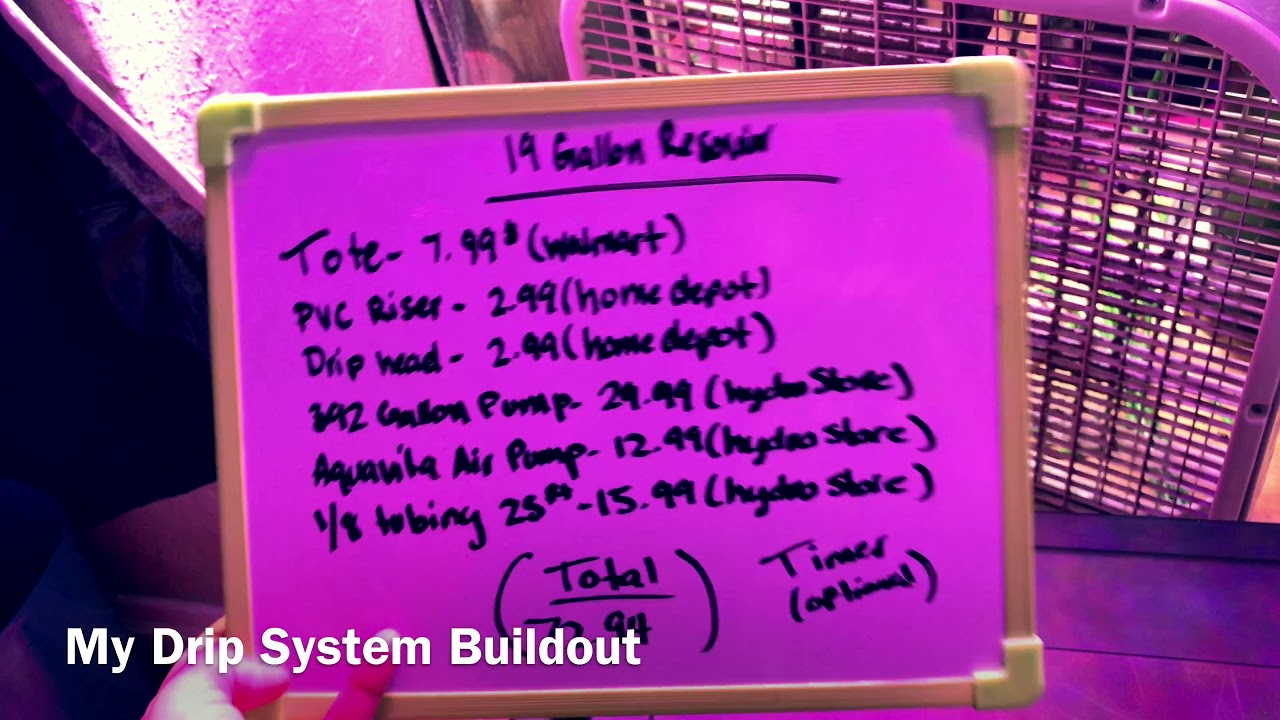 19 Gallon Resovior
Tote - 7.99$ (walmart)
PVC Riser - 2.99 (home depot)
Drip head - 2.99 (home depot)
392 Gallon Pump - 29.99 (hydro Store)
Aquavita Air Pump - 12.99 (hydro Store)
1/8 tubing 25ft - 15.99 (hydro Store)
(Total Timer
72.94) (optional)
My Drip System Buildout